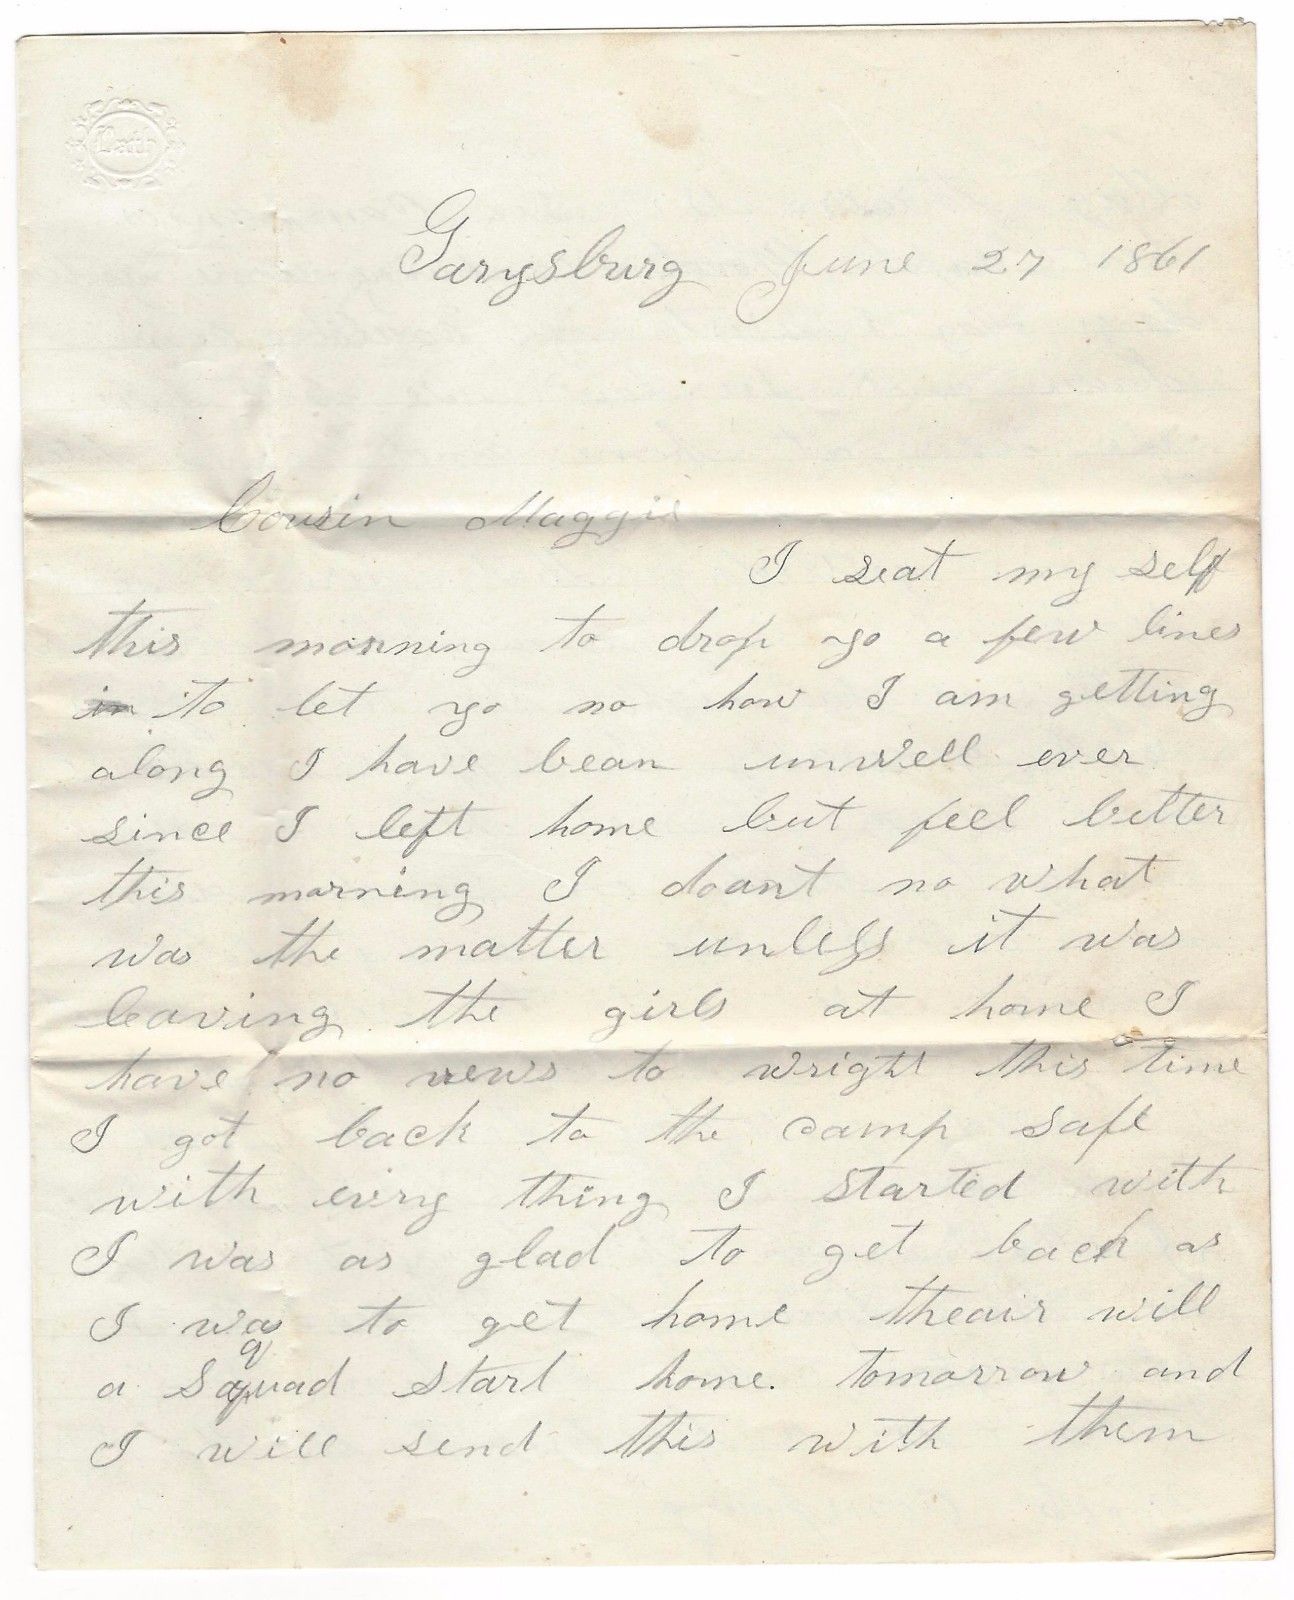 Garysburg June 27 1861
Cousin Maggie
I seat my self
this morning to drop yo a few lines
in to let yo no how I am getting
along I have bean unwell ever
since I left home but feel better
this morning I doant no what
was the matter unless it was
leaving the girls at home I
have no news to wright this time
I got back to the camp safe
with evry thing I started with
I was as glad to get back as
I was to get home theair will
a Squad start home. tomorrow and
I will send this with them